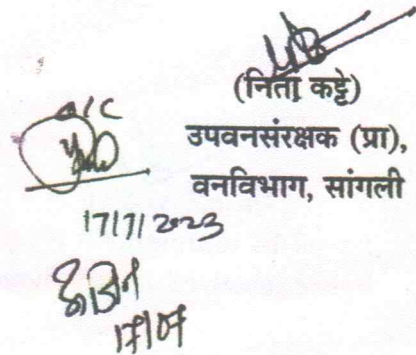 (निता कट्टे)
उपवनसंरक्षक (प्रा),
वनविभाग, सांगली
o/c
17/7/2023
17/07